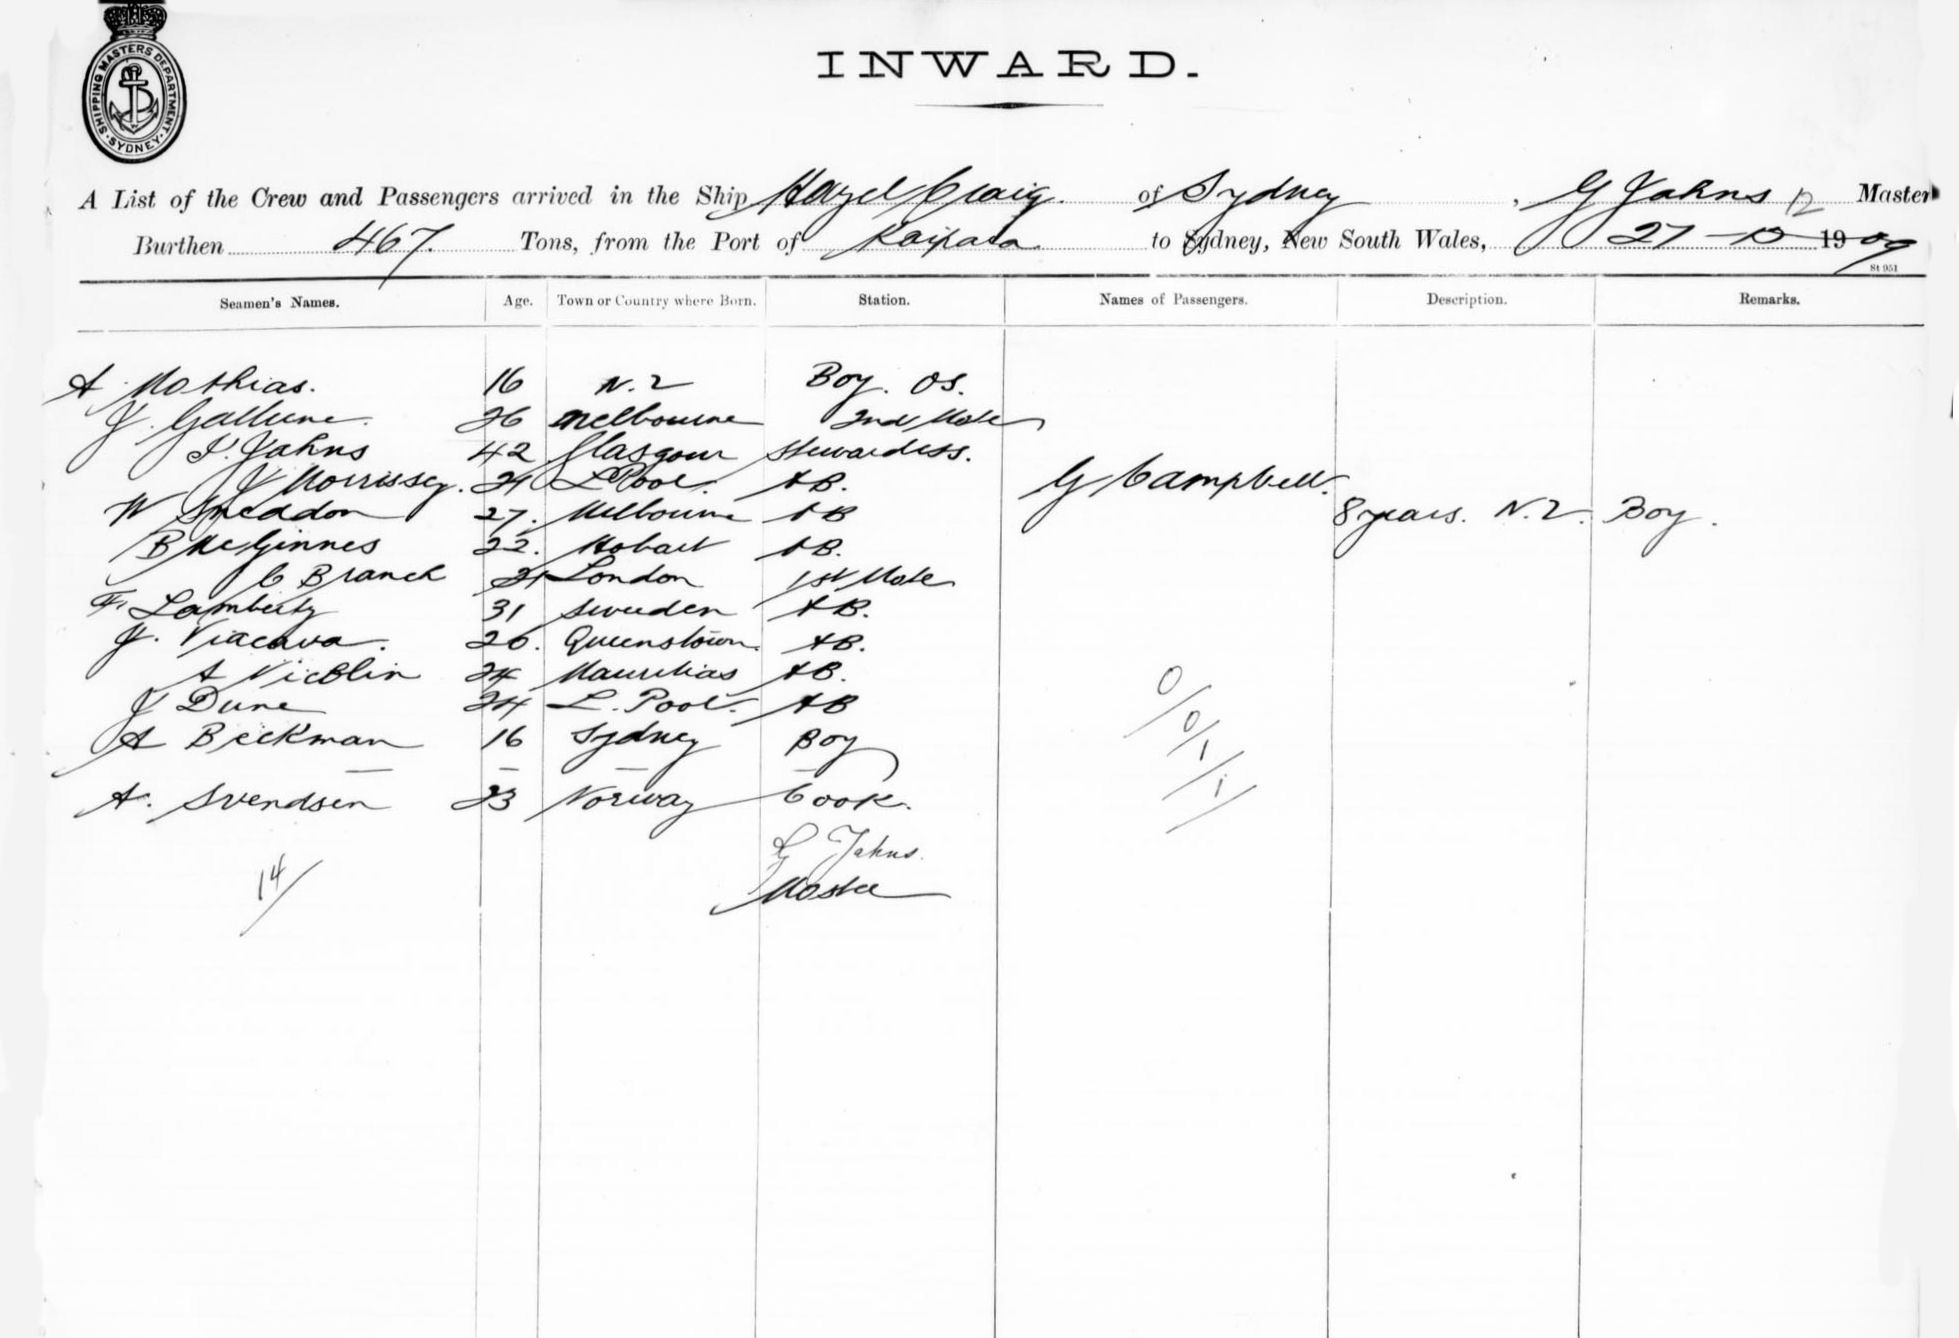 SHIPPING MASTERS DEPARTMENT. SYDNEY.
INWARD.
A List of the Crew and Passengers arrived in the Ship Hazel Craig. of Sydney, G Jahns 12 Master
Burthen 467. Tons, from the Port of Kaipara to Sydney, New South Wales, 27-10 1909
St 951
Seamen's Names. Age. Town or Country where Born. Station. Names of Passengers. Description. Remarks.
A Mathias. 16 N.Z Boy. OS.
J. 26 Melbourne 2nd Mate
I. Jahns 42 Glasgow Stewardess.
J Morrissey. L Pool. AB.
G Campbell.
W Sneddon 27. Melbourne AB
8 years. N.Z. Boy.
B McGinnes 22. Hobart AB.
C Branch London 1st Mate
F. Lamberty 31 Sweden AB.
J. Viacava. 26. Queenstown. AB.
A 24 Mauritias AB.
J Dune 24 L. Pool. AB
A Beckman 16 Sydney Boy
A. Svendsen 23 Norway Cook.
G Jahns.
Master
14/
0/0/1/1/